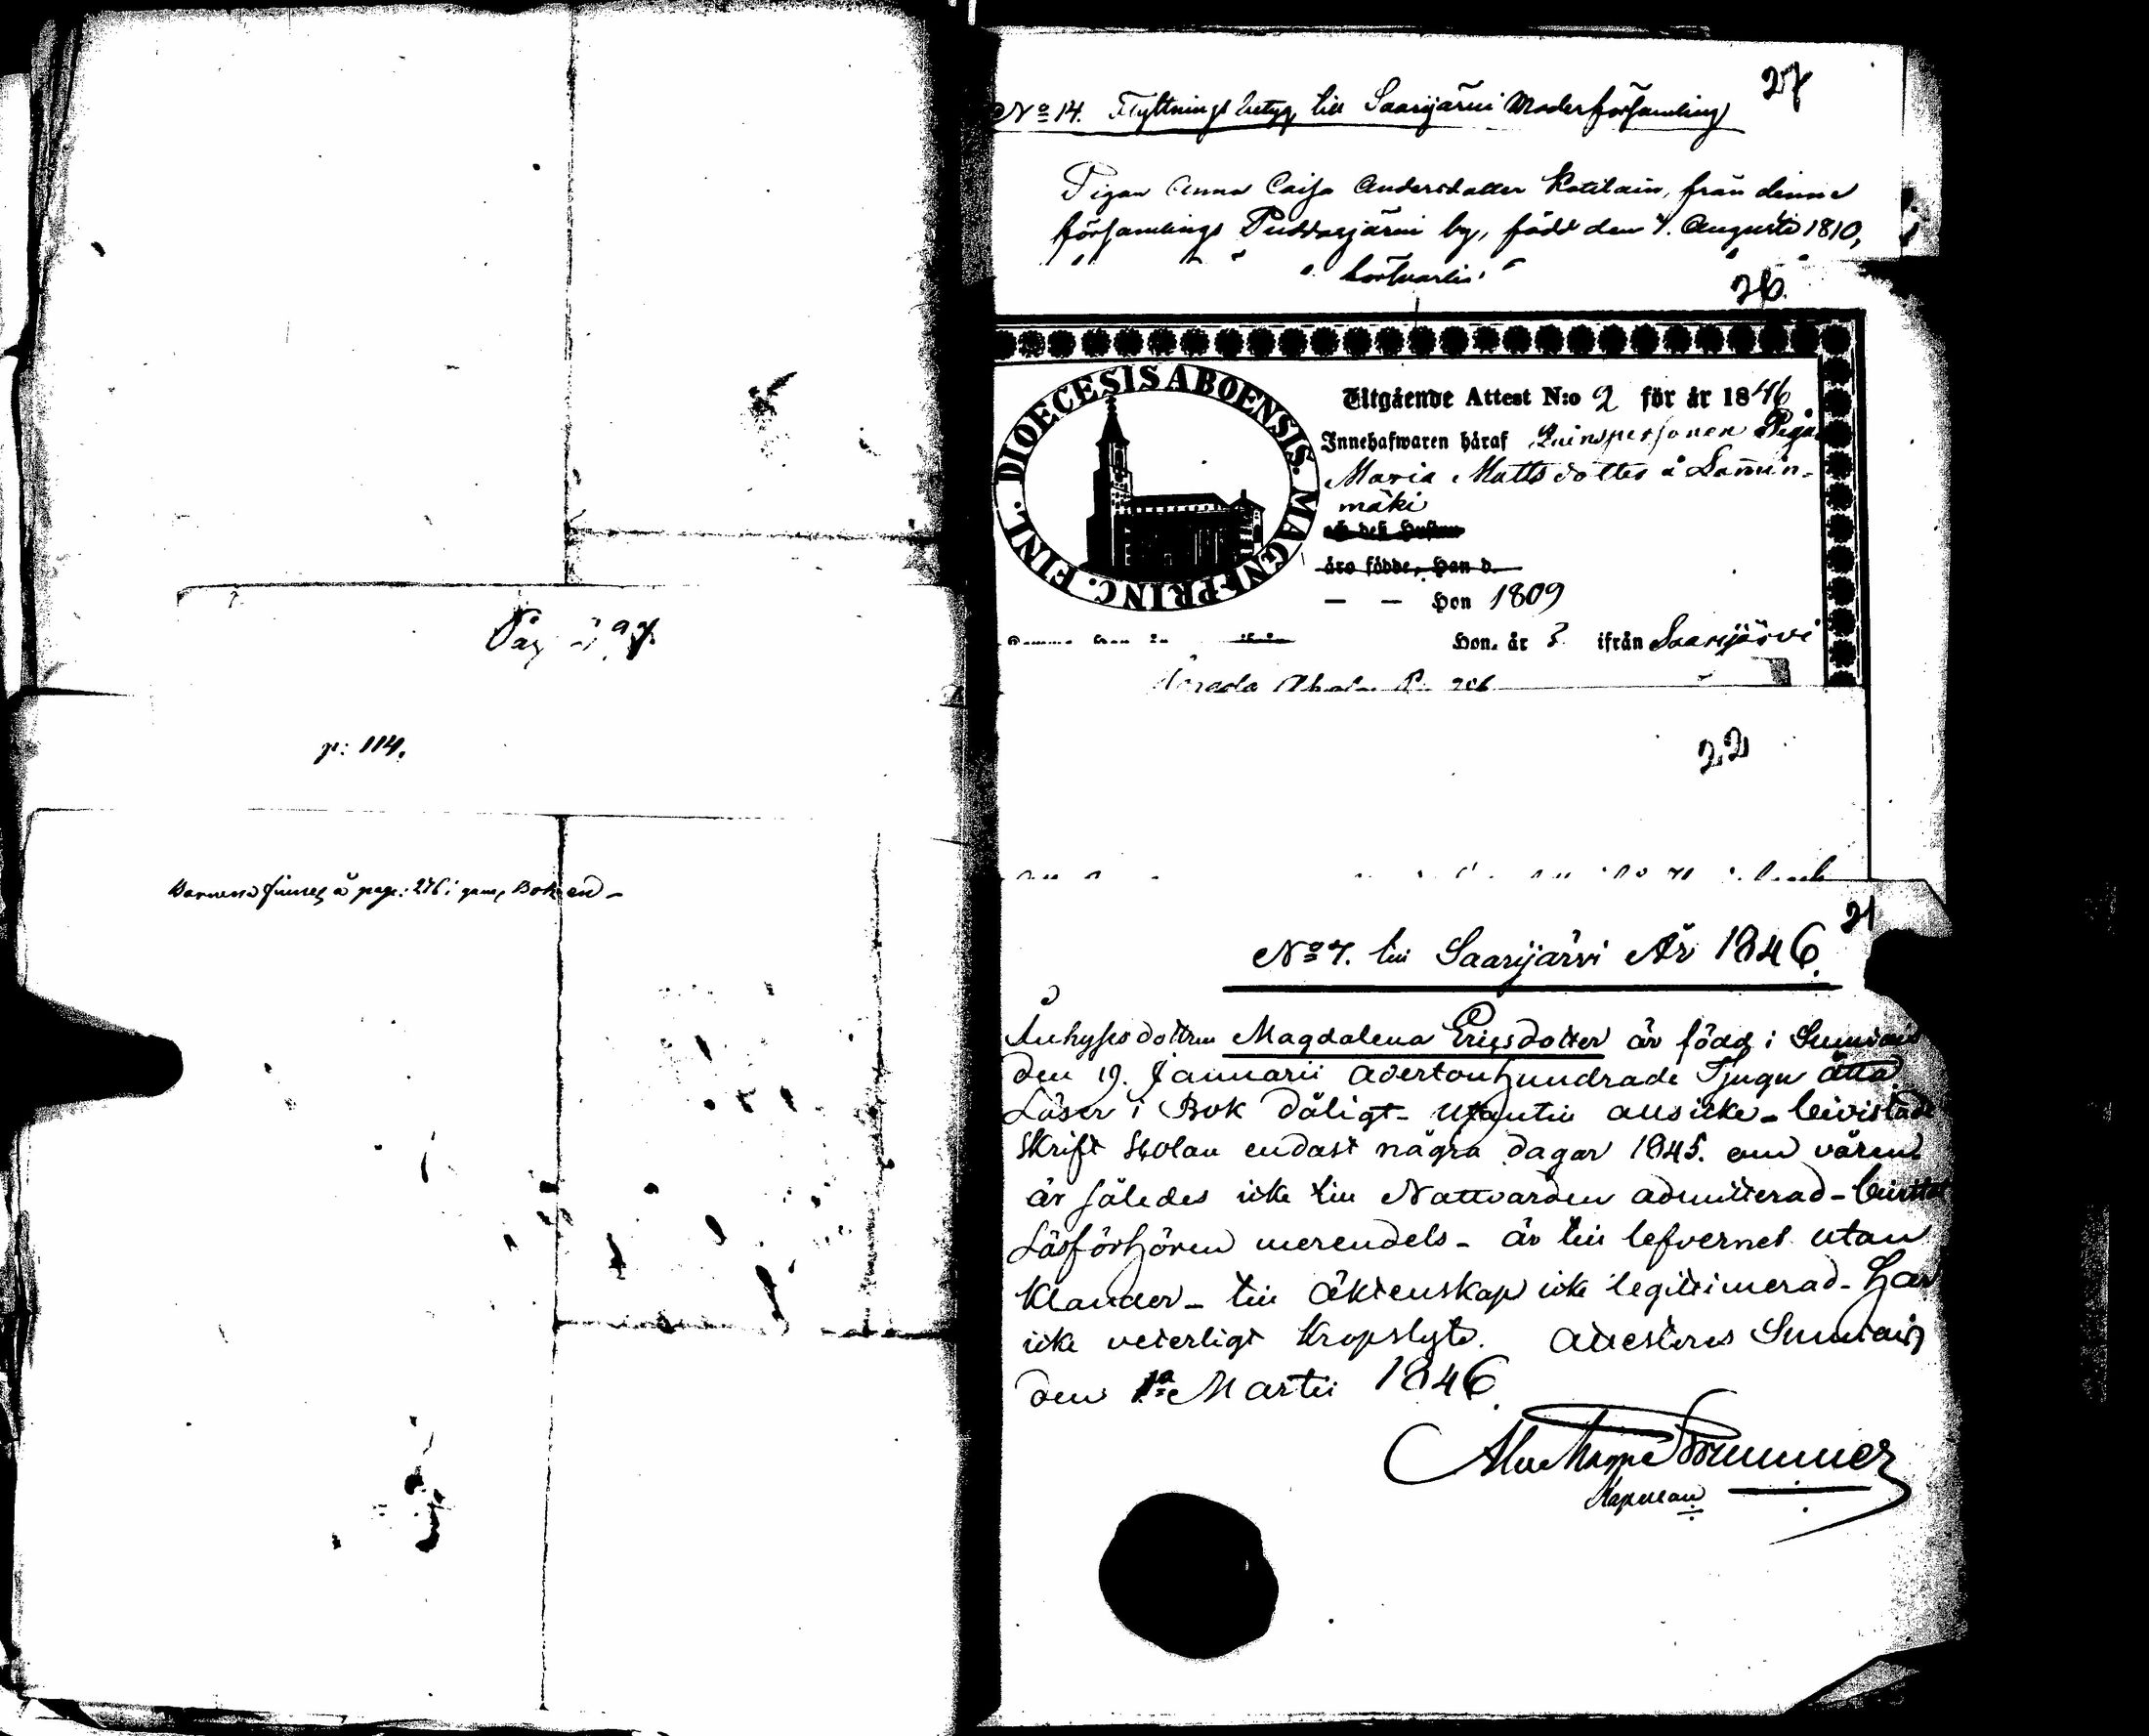 Pag 297.
p: 114.
Barnens finnes å pag: 276 i gamla Boken -
27
No 14. Flyttnings betyg till Saarijärvi Moderförsamling
Pigan Anna Caisa Andersdotter Kotilain, från denne
församlings Puddasjärvi by, född den 4. Augusti 1810,
26.
DIOECESIS ABOENSIS. MAGNI-PRINC. FINL.
Utgående Attest N:o 2 för år 1846
Innehafwaren häraf Qvinspersonen Pigan
Maria Mattsdotter å Lamin-
mäki
och dess Hustru
äro födde, Han d.
— — Hon 1809
Hon. år 3 ifrån Saarijärvi
22
21
No 7. till Saarijärvi År 1846.
Inhysesdottren Magdalena Ericsdotter är född i Sumiais
den 19. Januarii adertonhundrade Tjugu åtta
Läser i Bok dåligt - utantill alls icke - bevistade
Skrift Skolan endast några dagar 1845. om våren.
är således icke till Nattvarden admitterad - bevistat
Läsförhören merendels - är till lefvernet utan
klander - till äktenskap icke legitimerad - Har
icke veterligt Kropslyte. Attesteras Sumiais
den 1a Martii 1846.
Kapellan